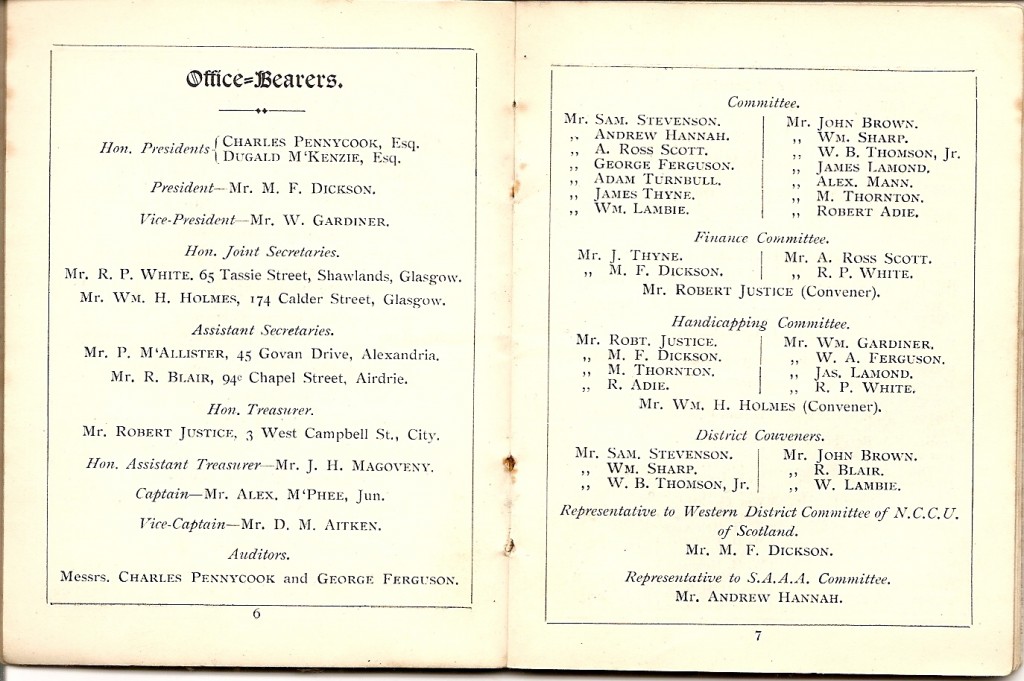 Office=Bearers.
Hon. Presidents { CHARLES PENNYCOOK, Esq.
DUGALD M‘KENZIE, Esq.
President—Mr. M. F. DICKSON.
Vice-President—Mr. W. GARDINER.
Hon. Joint Secretaries.
Mr. R. P. WHITE. 65 Tassie Street, Shawlands, Glasgow.
Mr. WM. H. HOLMES, 174 Calder Street, Glasgow.
Assistant Secretaries.
Mr. P. M‘ALLISTER, 45 Govan Drive, Alexandria.
Mr. R. BLAIR, 94c Chapel Street, Airdrie.
Hon. Treasurer.
Mr. ROBERT JUSTICE, 3 West Campbell St., City.
Hon. Assistant Treasurer—Mr. J. H. MAGOVENY.
Captain—Mr. ALEX. M‘PHEE, Jun.
Vice-Captain—Mr. D. M. AITKEN.
Auditors.
Messrs. CHARLES PENNYCOOK and GEORGE FERGUSON.
6
Committee.
Mr. SAM. STEVENSON.
,, ANDREW HANNAH.
,, A. ROSS SCOTT.
,, GEORGE FERGUSON.
,, ADAM TURNBULL.
,, JAMES THYNE.
,, WM. LAMBIE.
Mr. JOHN BROWN.
,, WM. SHARP.
,, W. B. THOMSON, Jr.
,, JAMES LAMOND.
,, ALEX. MANN.
,, M. THORNTON.
,, ROBERT ADIE.
Finance Committee.
Mr. J. THYNE.
,, M. F. DICKSON.
Mr. A. ROSS SCOTT.
,, R. P. WHITE.
Mr. ROBERT JUSTICE (Convener).
Handicapping Committee.
Mr. ROBT. JUSTICE.
,, M. F. DICKSON.
,, M. THORNTON.
,, R. ADIE.
Mr. WM. GARDINER.
,, W. A. FERGUSON.
,, JAS. LAMOND.
,, R. P. WHITE.
Mr. WM. H. HOLMES (Convener).
District Couveners.
Mr. SAM. STEVENSON.
,, WM. SHARP.
,, W. B. THOMSON, Jr.
Mr. JOHN BROWN.
,, R. BLAIR.
,, W. LAMBIE.
Representative to Western District Committee of N.C.C.U.
of Scotland.
Mr. M. F. DICKSON.
Representative to S.A.A.A. Committee.
Mr. ANDREW HANNAH.
7